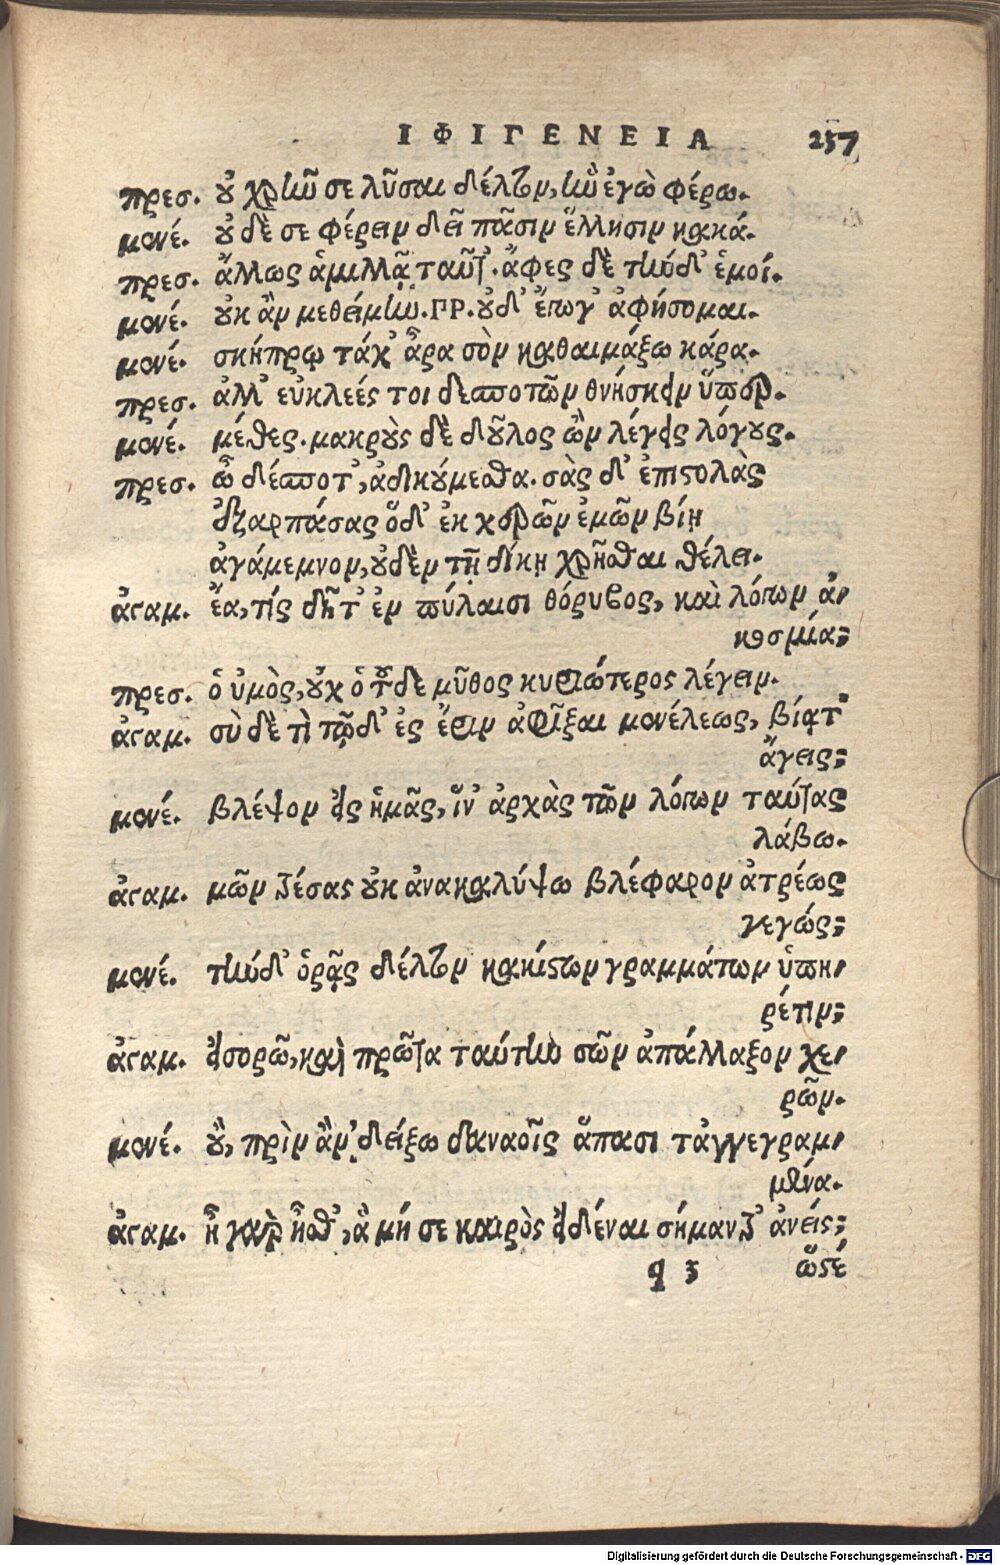 ΙΦΙΓΕΝΕΙΑ 257
πρεσ. οὐ χρῆν σε λῦσαι δέλτον, ἣν ἐγὼ φέρω.
μενέ. οὐδέ σε φέρειν δεῖ πᾶσιν ἕλλησιν κακά.
πρεσ. ἄλλως ἁμιλλᾷ ταῦτ'. ἄφες δὲ τήνδ' ἐμοί.
μενέ. οὐκ ἂν μεθείμην. ΠΡ. οὐδ' ἔγωγ' ἀφήσομαι.
μενέ. σκήπρῳ τάχ' ἄρα σὸν καθαιμάξω κάρα.
πρεσ. ἀλλ' εὐκλεές τοι δεσποτῶν θνήσκειν ὕπερ.
μενέ. μέθες. μακροὺς δὲ δοῦλος ὢν λέγεις λόγους.
πρεσ. ὦ δέσποτ', ἀδικούμεσθα. σὰς δ' ἐπιστολὰς
ἐξαρπάσας ὅδ' ἐκ χερῶν ἐμῶν βίῃ
ἀγάμεμνον, οὐδὲν τῇ δίκῃ χρῆσθαι θέλει.
ἀγαμ. ἔα, τίς δῆτ' ἐν πύλαισι θόρυβος, καὶ λόγων ἀ-
κοσμία;
πρεσ. ὁ ὑμὸς, οὐχ ὁ τοῦδε μῦθος κυριώτερος λέγειν.
ἀγαμ. σὺ δὲ τὶ τῷδ' ἐς ἔριν ἀφῖξαι μενέλεως, βίᾳ τ'
ἄγεις;
μενέ. βλέψον εἰς ἡμᾶς, ἵν' ἀρχὰς τῶν λόγων ταύτας
λάβω.
ἀγαμ. μῶν τρέσας οὐκ ἀνακαλύψω βλέφαρον ἀτρέως
γεγώς;
μενέ. τήνδ' ὁρᾷς δέλτον κακίστων γραμμάτων ὑπη-
ρέτιν;
ἀγαμ. εἰσορῶ, καὶ πρῶτα ταύτην σῶν ἀπάλλαξον χε-
ρῶν.
μενέ. οὒ, πρὶν ἂν δείξω δαναοῖς ἅπασι τἀγγεγραμ-
μένα.
ἀγαμ. ἦ γὰρ ἦσθ', ἃ μή σε καιρὸς εἰδέναι σήμαντρ' ἀνείς;
q 3 ὥστέ
Digitalisierung gefördert durch die Deutsche Forschungsgemeinschaft - DFG